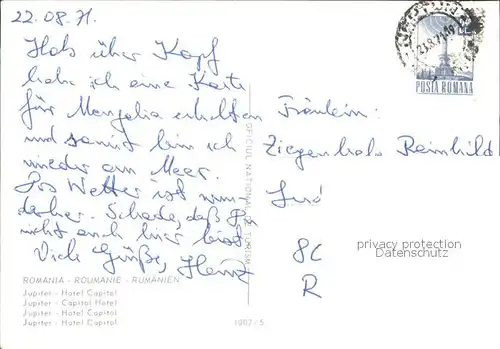 22.08.71.
Hals über Kopf
habe ich eine Karte
für Mangalia erhalten
und somit bin ich
wieder am Meer.
Das Wetter ist wun-
derbar. Schade, daß Du
nicht auch hier bist.
Viele Grüße, Heinz
Fräulein:
Ziegenhals Reinhild
8C
R
POSTA ROMANA
OFICIUL NATIONAL DE TURISM
privacy protection
Datenschutz
ROMANIA - ROUMANIE - RUMÄNIEN
Jupiter - Hotel Capitol
Jupiter - Capitol Hotel
Jupiter - Hotel Capitol
Jupiter - Hotel Capitol
1967/5